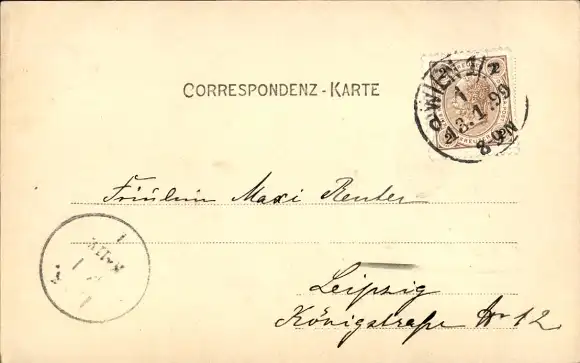 CORRESPONDENZ-KARTE
WIEN 1/1
13.1.99
8-9N
Fräulein Maxi Reuter
Leipzig
Königstraße No 12